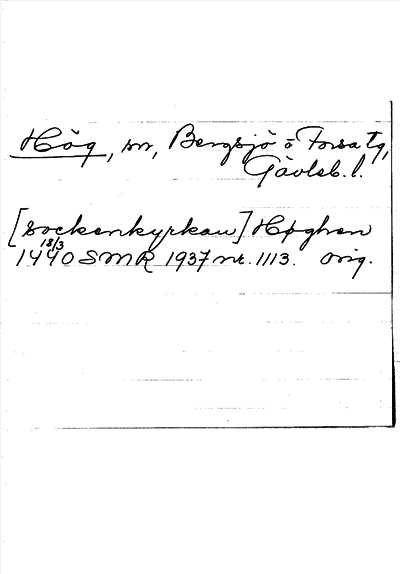 Hög, sn, Bergsjö o Forsa tg,
Gävleb. l.
[sockenkyrkan] Høghen
18/3
1440 SMR 1937 nr. 1113. orig.